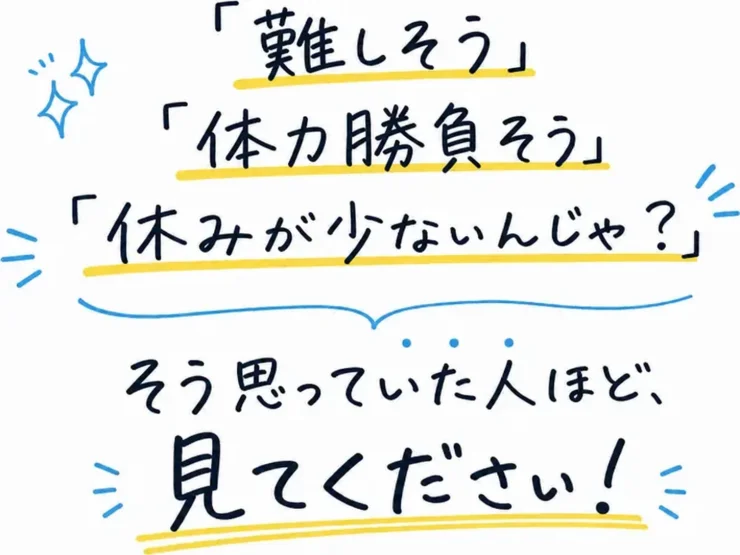 「難しそう」
「体力勝負そう」
「休みが少ないんじゃ？」
そう思っていた人ほど、
見てください！